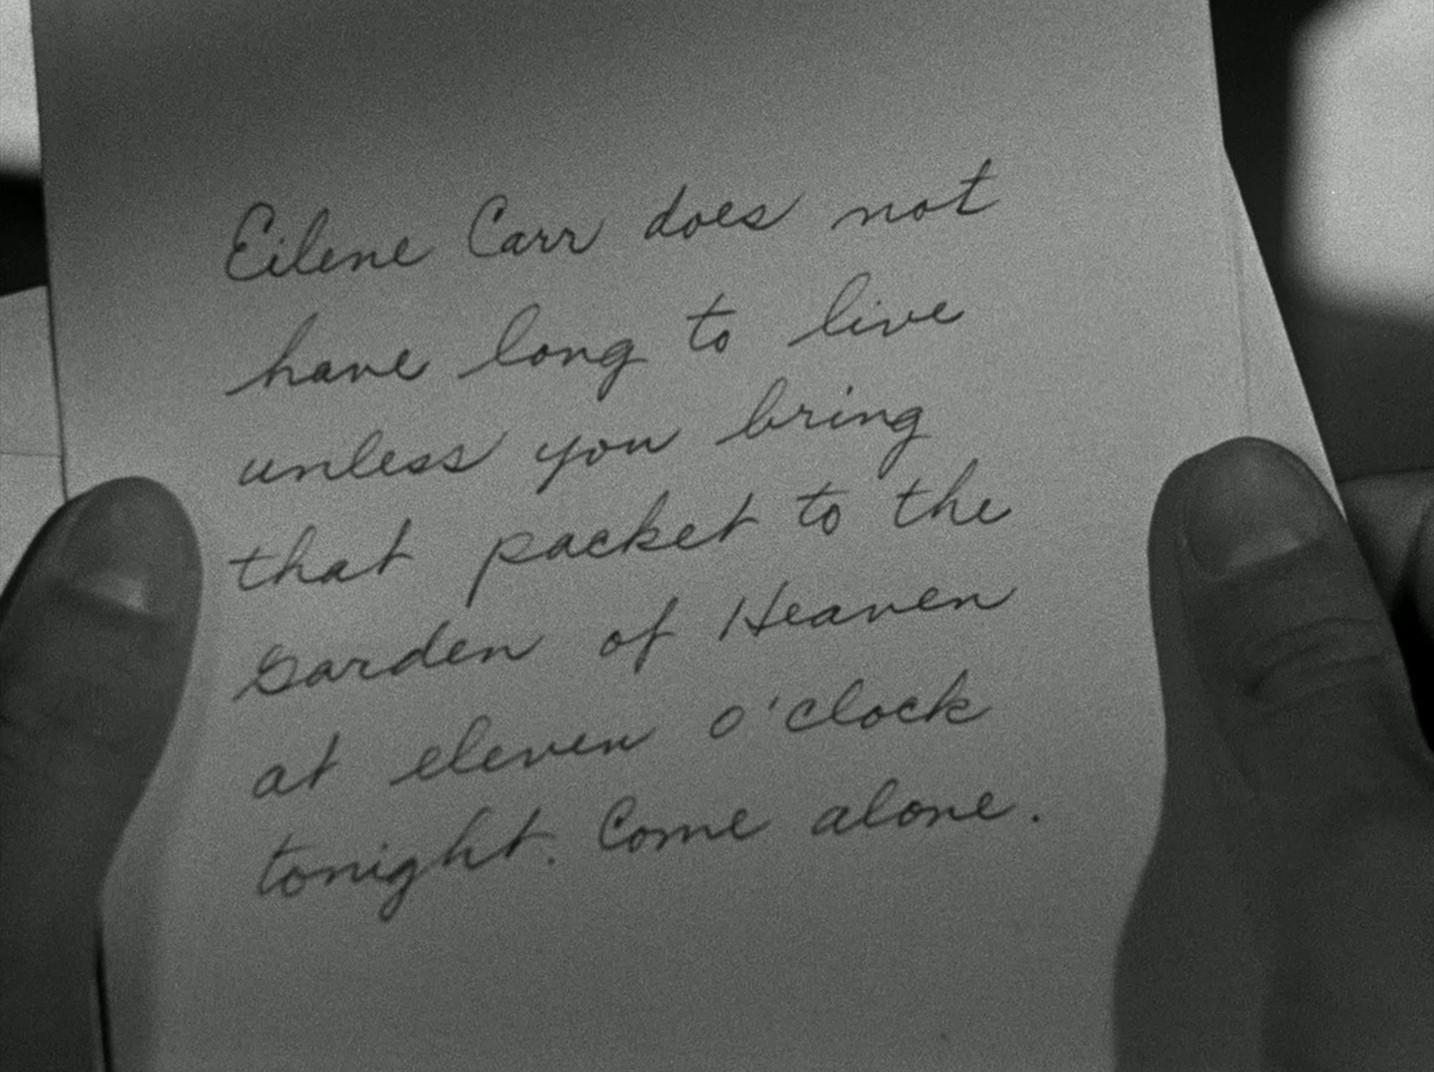 Eilene Carr does not
have long to live
unless you bring
that packet to the
Garden of Heaven
at eleven o'clock
tonight. Come alone.